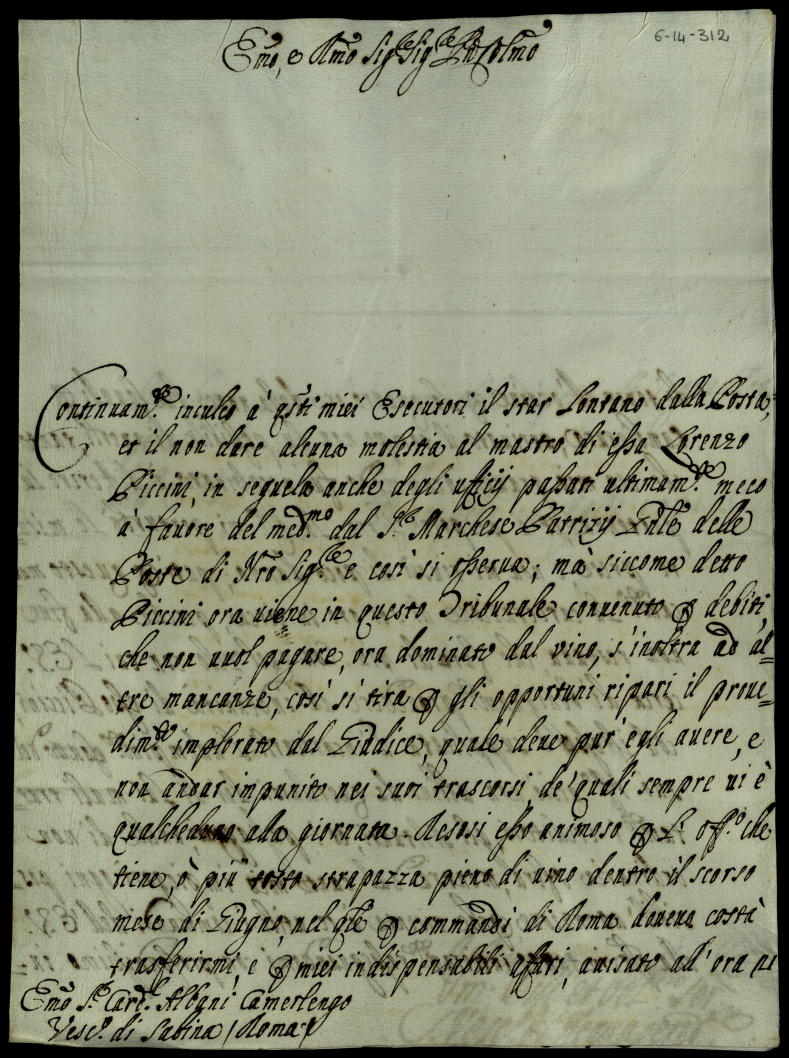 6-14-312
Emo, e Rmo Sig.re Sig.re Pne Colmo
Continuam.te inculco à q̃sti miei Esecutori il star lontano dalla Posta,
et il non dare alcuna molestia al mastro di essa Lorenzo
Piccini, in sequela anche degli ufficij passati ultimam.te meco
à favore del med.mo dal S.r Marchese Patrizij Gñle delle
Poste di Nro Sig.re e così si osserva; mà siccome detto
Piccini ora viene in questo Tribunale convenuto p debiti,
che non vuol pagare, ora dominato dal vino, s'inoltra ad al=
tre mancanze, così si tira p gli opportuni ripari il prove=
dim.to implorato dal Giudice, quale deve pur' egli avere, e
non andar impunito nei suoi trascorsi, de' quali sempre vi è
qualcheduno alla giornata. Resosi esso animoso p l'off.o che
tiene, ò più tosto strapazza pieno di vino dentro il scorso
mese di Giugno, nel q̃le p commandi di Roma doveva costà
trasferirmi, e p miei indispensabili affari, avisato all' ora
Emo S.r Card.le Albani Camerlengo
Vesc.o di Sabina / Roma /